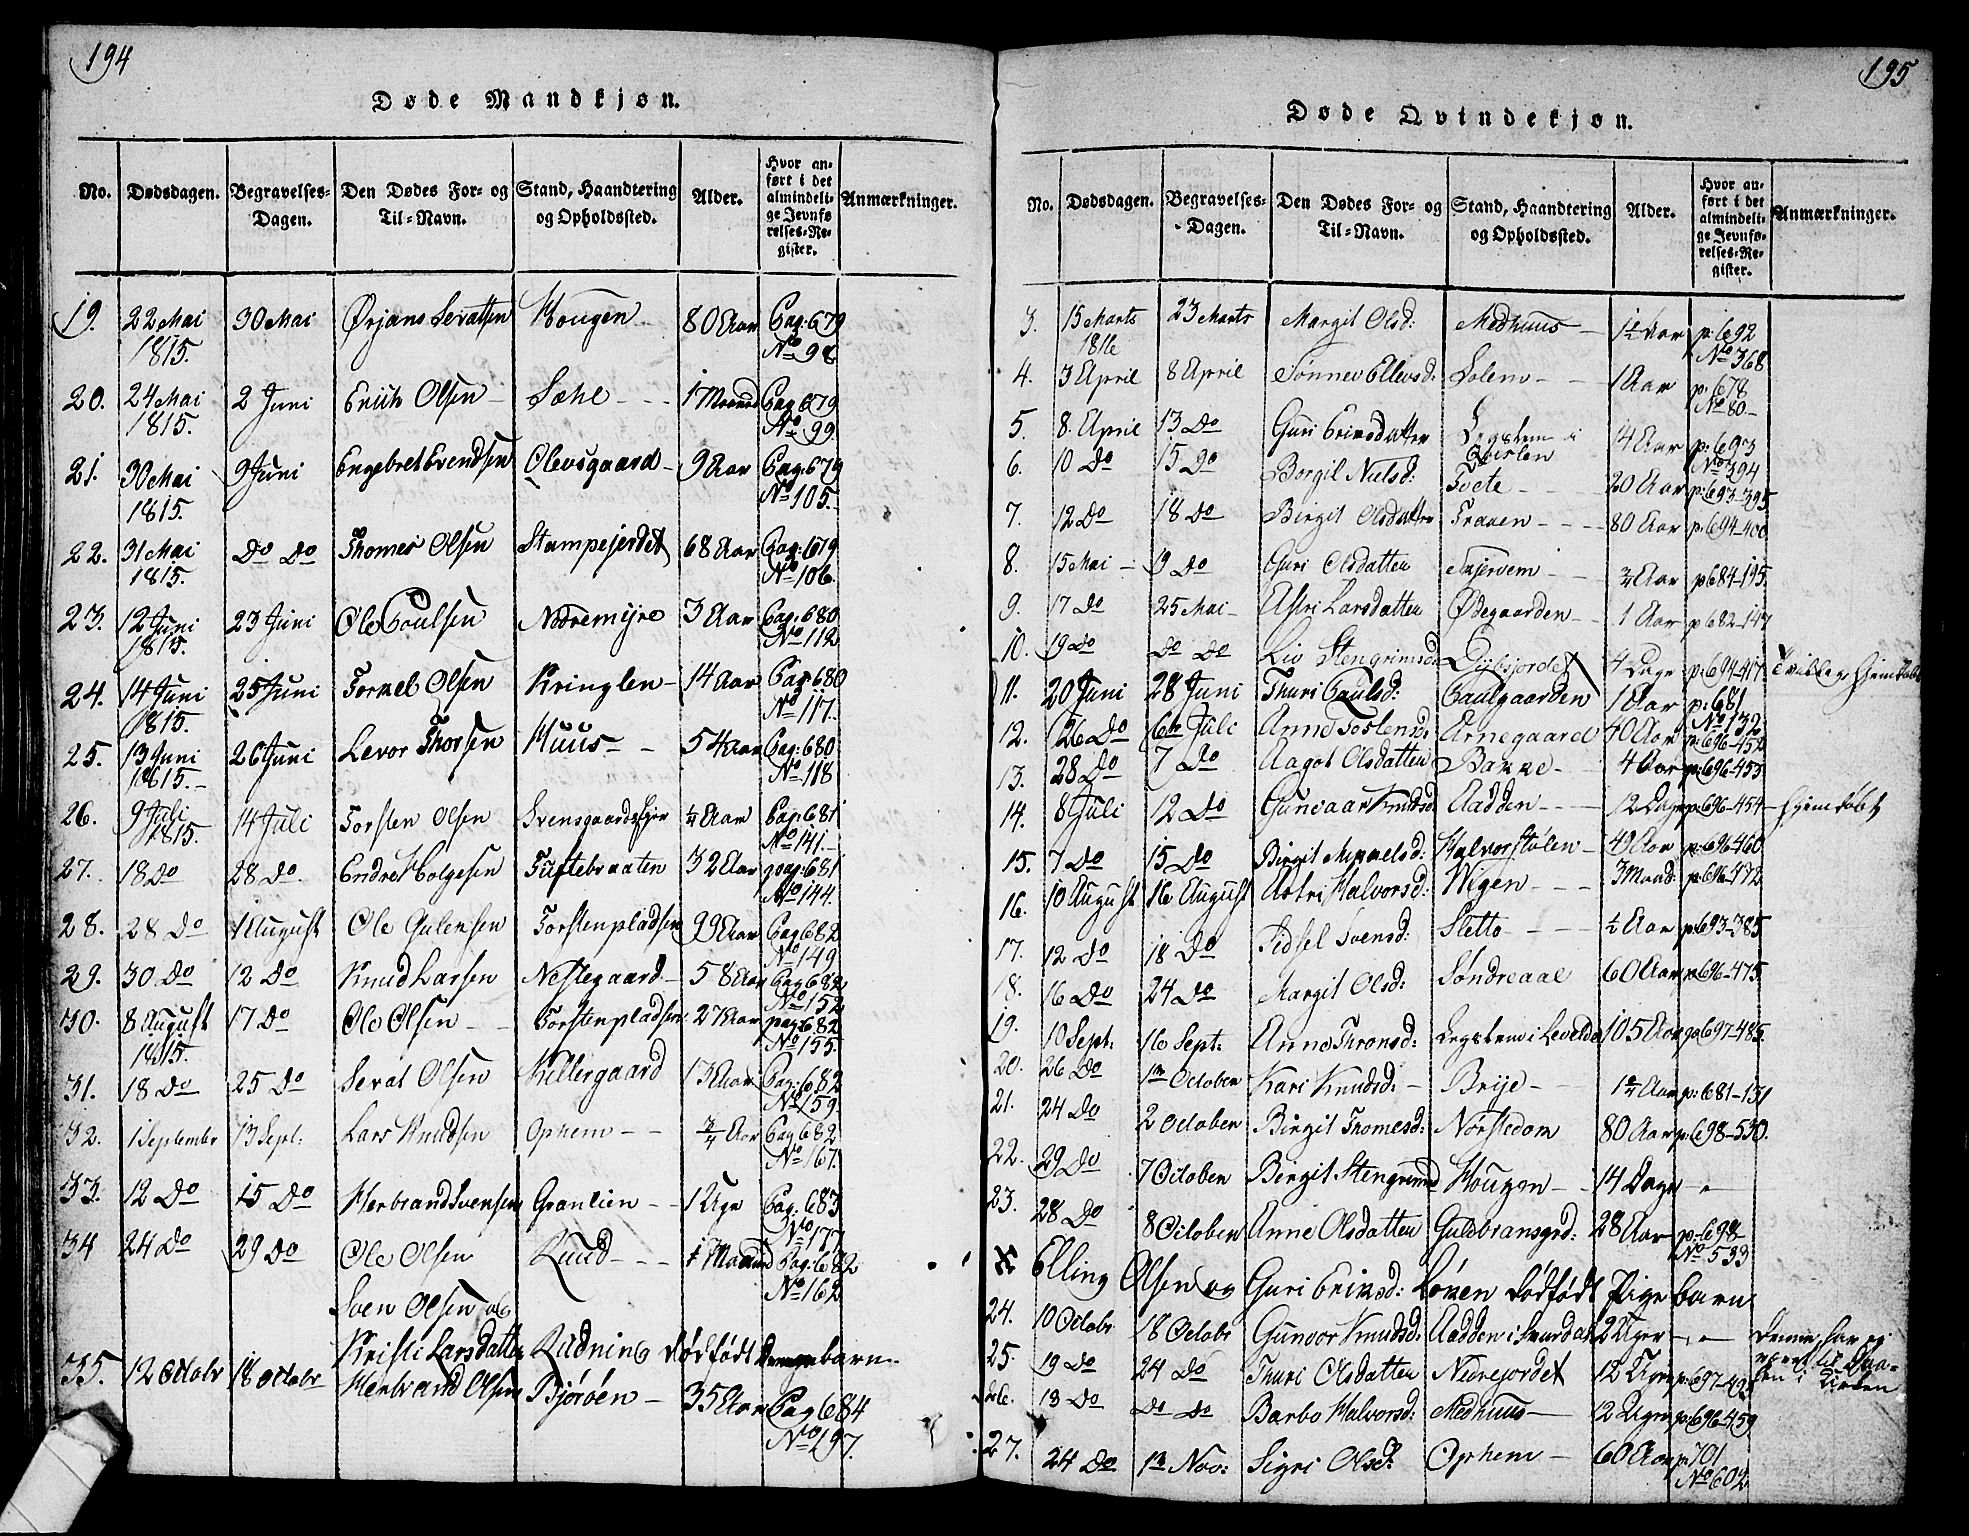 194
Døde Mandkjøn.
No. Dødsdagen. Begravelses-Dagen. Den Dødes For- og Til-Navn. Stand, Haandtering og Opholdssted. Alder. Hvor anført i det almindelige Jevnførelses-Register. Anmærkninger.
19. 22 Mai 1815. 30 Mai Ørjans Sevatsen Hougen 80 Aar Pag: 679 No 98
20. 24 Mai 1815. 2 Juni Erich Olsen Sæhl 1 Maaned Pag 679 No 99.
21. 30 Mai 1815. 9 Juni Engebret Evendsen Olevsgaard 9 Aar Pag: 679 No 105.
22. 31 Mai 1815. Do Do Thomes Olsen Stampejerdet 68 Aar Pag: 679 No 106.
23. 12 Juni 1815. 23 Juni Ole Poulsen Nedremyre 3 Aar Pag: 680 No 112
24. 14 Juni 1815. 25 Juni Torkel Olsen Kringlen 14 Aar Pag 680 No 117.
25. 13 Juni 1815. 26 Juni Levor Thorsen Huus 54 Aar Pag: 680 No 118
26. 9 Juli 1815. 14 Juli Torsten Olsen ¼ Aar Pag: 681 No 141.
27. 18 Do 28 Do Endre Holgesen Tuftebraaten 32 Aar pag: 681 No 144.
28. 28 Do 1 August Ole Gulensen Torstenpladsen 99 Aar Pag 682 No 149
29. 30 Do 12 Do Knud Larsen Nestegaard 58 Aar Pag 682 No 152
30. 8 August 1815. 17 Do Ole Olsen Torstenpladsen 27 Aar pag: 682 No 155.
31. 18 Do 25 Do Sevat Olsen Killergaard 13 Aar Pag: 682 No 159
32. 1 September 13 Sept: Lars Knudsen Ophem ¾ Aar Pag 682 No 167.
33. 12 Do 15 Do Herbrand Svensen Granlien 1 Uge Pag: 683 No 177
34 24 Do 29 Do Ole Olsen Ruud Maaned Pag: 682 No 162
Sven Olsen og
Kristi Larsdatter Rudning dødfødt barn
35. 12 Octobr 18 Octobr Herbrand Olsen Bjøröen 35 Aar Pag 684 No 197.
195
Døde Qvindekjøn.
No. Dødsdagen. Begravelses-Dagen. Den Dødes For- og Til-Navn. Stand, Haandtering og Opholdssted. Alder. Hvor anført i det almindelige Jevnførelses-Register. Anmærkninger.
3. 15 Marts 1816 23 Marts Margit Olsd: Medhuus 1½ Aar p: 692 No 368
4. 3 April 8 April Sönnev Ellevsd: Solem 1 Aar p: 678 No 80
5. 8. April 13 Do Guri Eriksdatter 4 Aar p: 693 No 394
6. 10 Do 15 Do Borgil Nielsd: Tvete 20 Aar p: 693-395
7. 12 Do 18 Do Birgit Olsdatter Fraven 80 Aar p: 694-400
8. 15 Mai 9 Do Guri Olsdatter Skjervem ¾ Aar p 684-195.
9. 17 Do 25 Mai Astri Larsdatter Ødegaarden 1 Aar p 682-147
10. 19 Do Do Do Liv Stengrimsd: 4 Dage p: 694-417 Tvilling, hjemdøbt
11. 20 Juni 28 Juni Thuri Paulsd: Paulgaarden 1 Aar p: 681 No 132
12. 26 Do 6te Juli Anne Tostensd: Arnegaard 40 Aar p: 696-452
13. 28 Do 7 Do Aagot Olsdatter Bakke 4 Aar p: 696-453
14. 8 Juli 12 Do Gunvaar Knudsd: Aadden 12 Dage p: 696-454 hjemdøbt
15. 7 Do 15 Do Birgit Mikkelsd: Halvorstølen 40 Aar p: 696-460
16. 10 August 16 August Astri Halvorsd: Wigen 3 Maan: p: 696-472
17. 12 Do 18 Do Sidsel Svensd: Sletto ½ Aar p: 693-385
18. 16 Do 24 Do Margit Olsd: Söndreaal 60 Aar p: 696-475.
19. 10 Sept: 16 Sept: Anne Thronsd: 105 Aar p: 697-485.
20. 26 Do 1ste October Kari Knudsd: Brije 1¾ Aar p: 681-131
21. 24 Do 2 October Birgit Thomesd: Norstedom 80 Aar p: 698-530.
22. 29 Do 7 October Birgit Stengrimsd Hougen 14 Dage
23. 28 Do 8 October Anne Olsdatter Guldbransgrd: 28 Aar p: 698- No 533
Elling Olsen og Guri Eriksd: Løken dødfødt Pige barn
24. 10 Octobr 18 Octobr Gunvor Knudsd: Aadden i 2 Uger
25. 19 Do 24 Do Thuri Olsdatter Nedrejordet 12 Uger p: 697-
26. 18 Do Do Do Barbo Halvorsd: Medhuus 12 Uger p: 696-459
27. 24 Do 1ste Nov: Sigri Olsd: Ophem 60 Aar p: 701 No 602